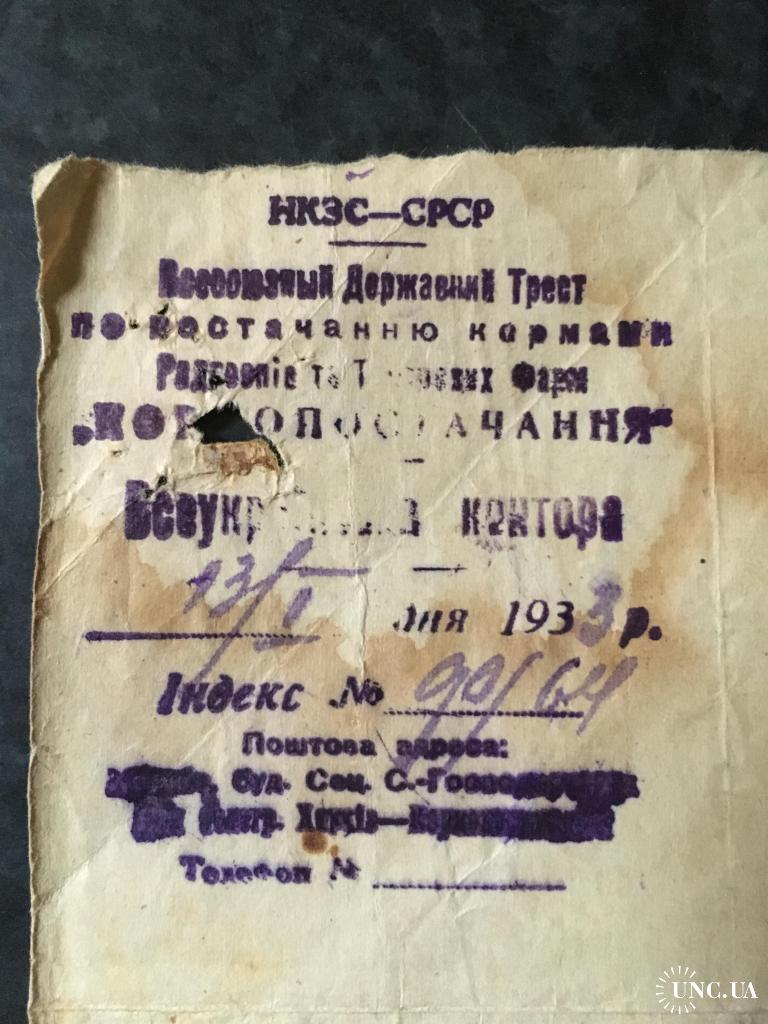 НКЗС—СРСР
Всесоюзный Державний Трест
по постачанню кормами
Радгоспів та Фарм
„КОР ОПОСТАЧАННЯ“
контора
13/I дня 1933 р.
Індекс № 90/64
Поштова адреса:
Буд. Соц. С.-Господарства
Харків—
Телефон №
UNC.UA